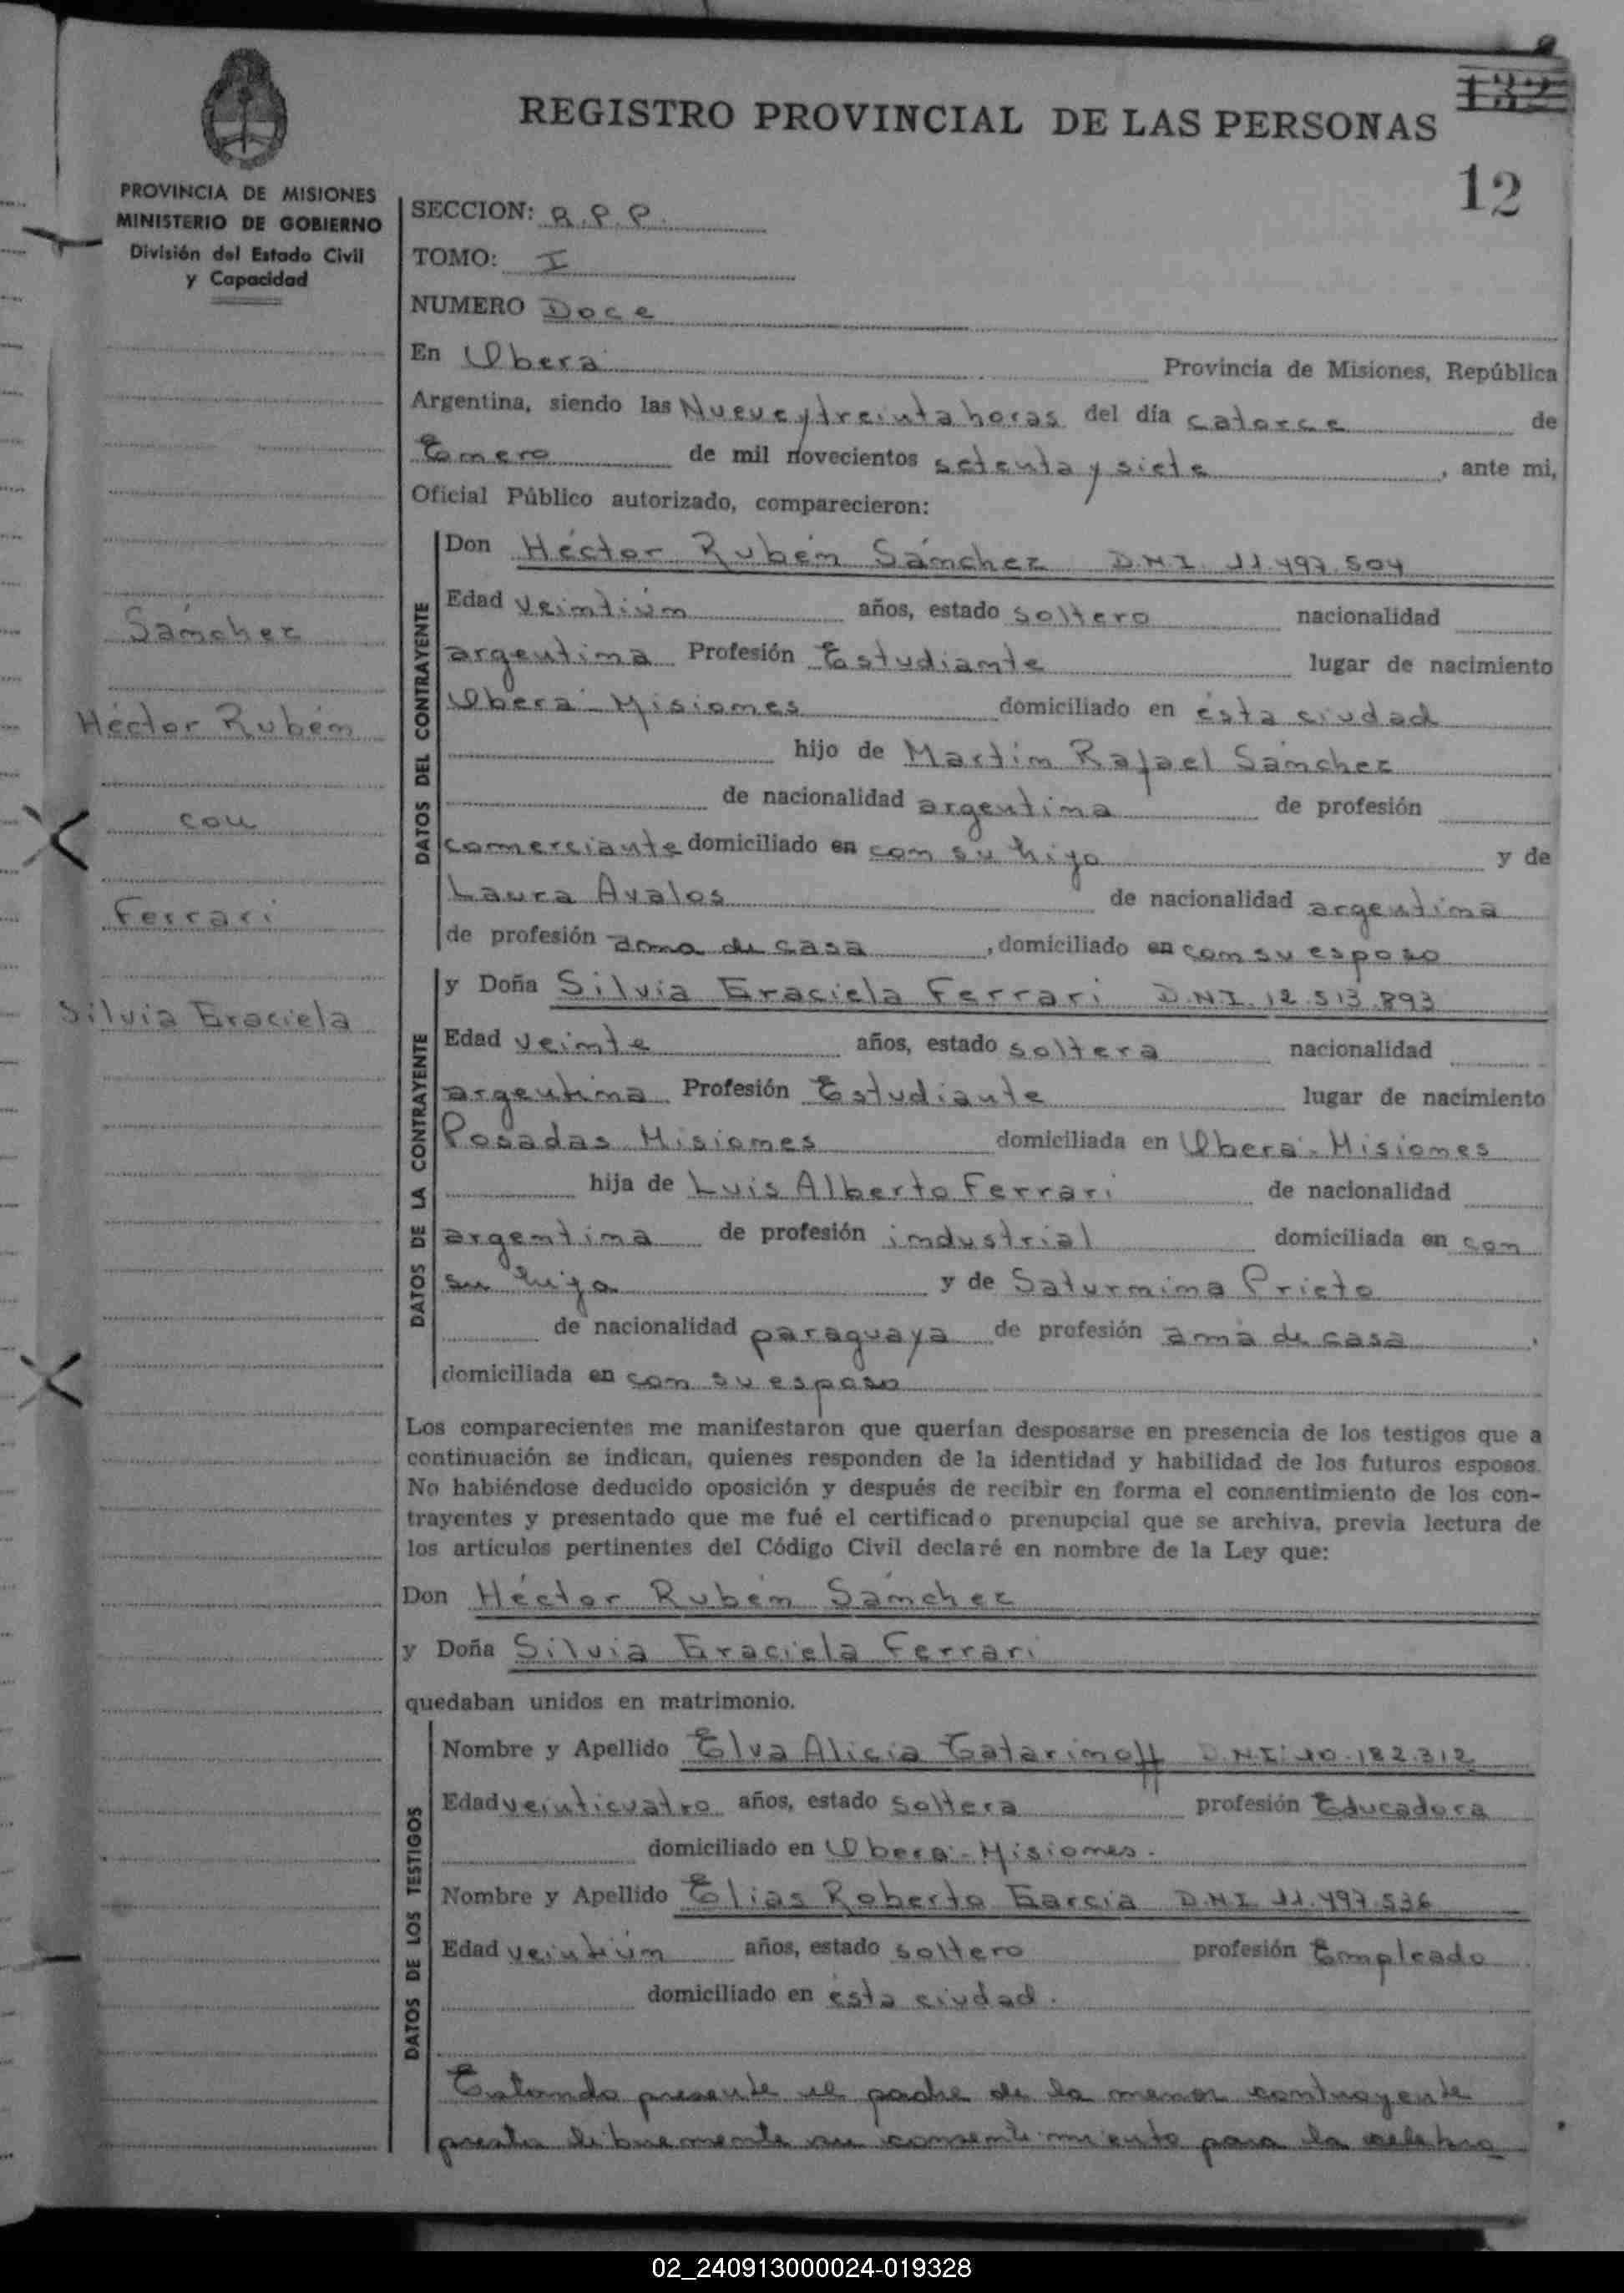 132
REGISTRO PROVINCIAL DE LAS PERSONAS
12
PROVINCIA DE MISIONES
MINISTERIO DE GOBIERNO
División del Estado Civil
y Capacidad
Sánchez
Héctor Rubén
con
Ferrari
Silvia Graciela
SECCION: R.P.P.
TOMO: I
NUMERO Doce
En Oberá Provincia de Misiones, República
Argentina, siendo las Nueve y treinta horas del día catorce de
Enero de mil novecientos setenta y siete, ante mi,
Oficial Público autorizado, comparecieron:
DATOS DEL CONTRAYENTE
Don Héctor Rubén Sánchez D.N.I. 11.497.504
Edad veintiún años, estado soltero nacionalidad
argentina Profesión Estudiante lugar de nacimiento
Oberá - Misiones domiciliado en ésta ciudad
hijo de Martín Rafael Sánchez
de nacionalidad argentina de profesión
comerciante domiciliado en con su hijo y de
Laura Avalos de nacionalidad argentina
de profesión ama de casa, domiciliado en con su esposo
DATOS DE LA CONTRAYENTE
y Doña Silvia Graciela Ferrari D.N.I. 12.513.893
Edad veinte años, estado soltera nacionalidad
argentina Profesión Estudiante lugar de nacimiento
Posadas Misiones domiciliada en Oberá - Misiones
hija de Luis Alberto Ferrari de nacionalidad
argentina de profesión industrial domiciliada en con
su hija y de Saturnina Prieto
de nacionalidad paraguaya de profesión ama de casa,
domiciliada en con su esposo
Los comparecientes me manifestarón que querían desposarse en presencia de los testigos que a
continuación se indican, quienes responden de la identidad y habilidad de los futuros esposos.
No habiéndose deducido oposición y después de recibir en forma el consentimiento de los con-
trayentes y presentado que me fué el certificado prenupcial que se archiva, previa lectura de
los artículos pertinentes del Código Civil declaré en nombre de la Ley que:
Don Héctor Rubén Sánchez
y Doña Silvia Graciela Ferrari
quedaban unidos en matrimonio.
DATOS DE LOS TESTIGOS
Nombre y Apellido Elva Alicia Tatarinoff D.N.I: 10.182.312
Edad veinticuatro años, estado soltera profesión Educadora
domiciliado en Oberá - Misiones.
Nombre y Apellido Elías Roberto García D.N.I 11.497.536
Edad veintiún años, estado soltero profesión Empleado
domiciliado en ésta ciudad.
Estando presente el padre de la menor contrayente
presta libremente su consentimiento para la celebra
02_240913000024-019328